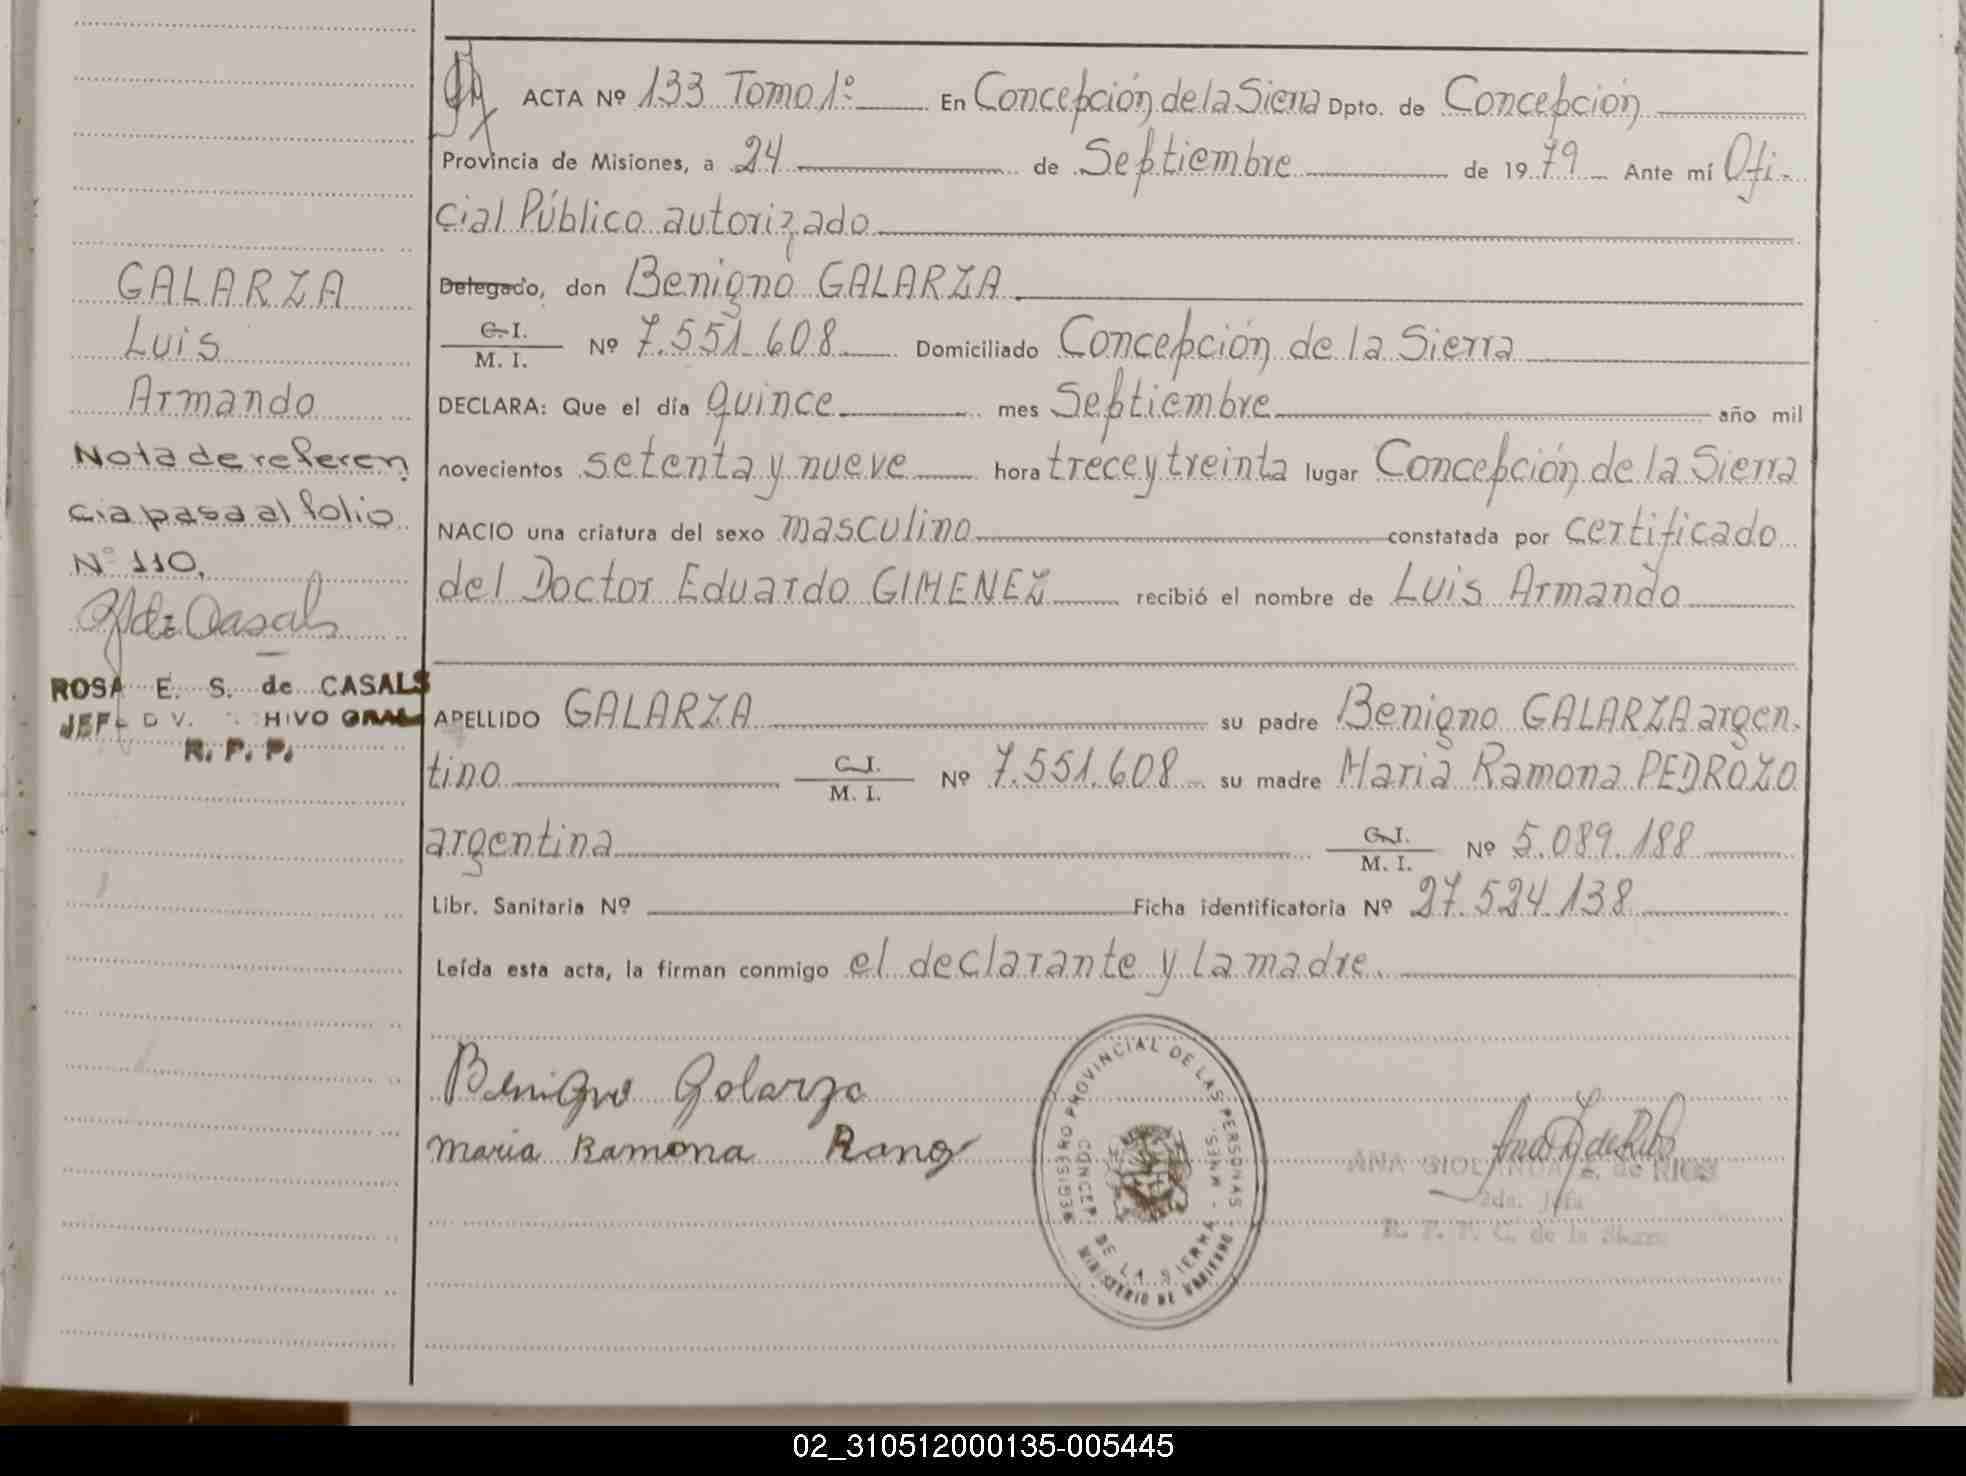 ACTA Nº 133 Tomo 1º En Concepción de la Sierra Dpto. de Concepción
Provincia de Misiones, a 24 de Septiembre de 1979 Ante mí Ofi-
cial Público autorizado
Delegado, don Benigno GALARZA
C. I.
M. I. Nº 7.551.608 Domiciliado Concepción de la Sierra
DECLARA: Que el día quince mes Septiembre año mil
novecientos setenta y nueve hora trece y treinta lugar Concepción de la Sierra
NACIO una criatura del sexo masculino constatada por certificado
del Doctor Eduardo GIMENEZ recibió el nombre de Luis Armando
APELLIDO GALARZA su padre Benigno GALARZA argen-
tino C. I. M. I. Nº 7.551.608 su madre Maria Ramona PEDROZO
argentina C. I. M. I. Nº 5.089.188
Libr. Sanitaria Nº Ficha identificatoria Nº 27.524.138
Leída esta acta, la firman conmigo el declarante y la madre.
GALARZA
Luis
Armando
Nota de referen
cia pasa al folio
Nº 110.
de Casals
ROSA E. S. de CASALS
R. P. P.
Benigno Galarza
Maria Ramona
REGISTRO PROVINCIAL DE LAS PERSONAS
CONCEP. DE LA SIERRA - MNES.
MINISTERIO DE GOBIERNO
ANA GIOLANDA F. de RIOS
2da. Jefa
R. P. P. C. de la Sierra
02_310512000135-005445